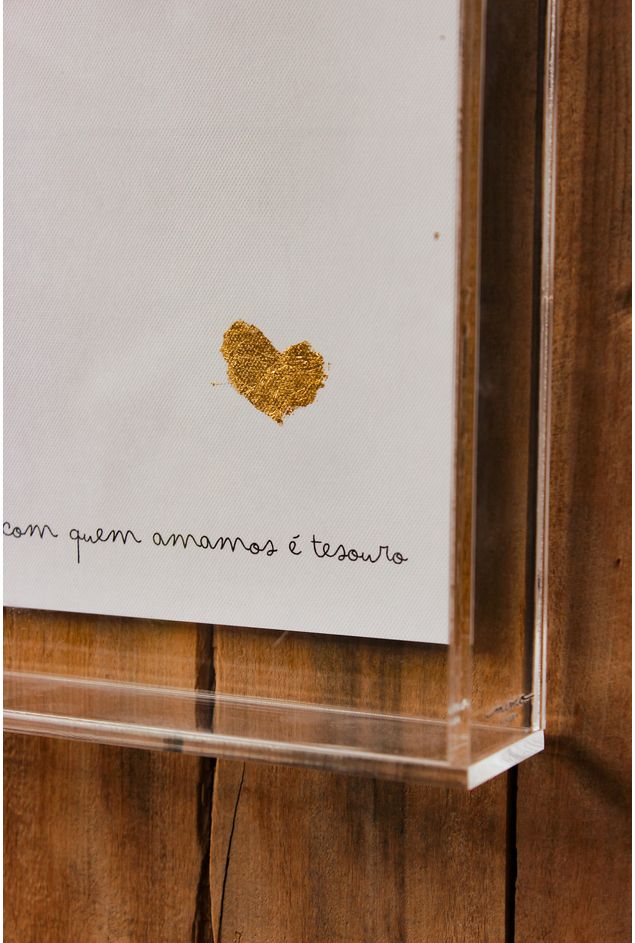 com quem amamos é tesouro